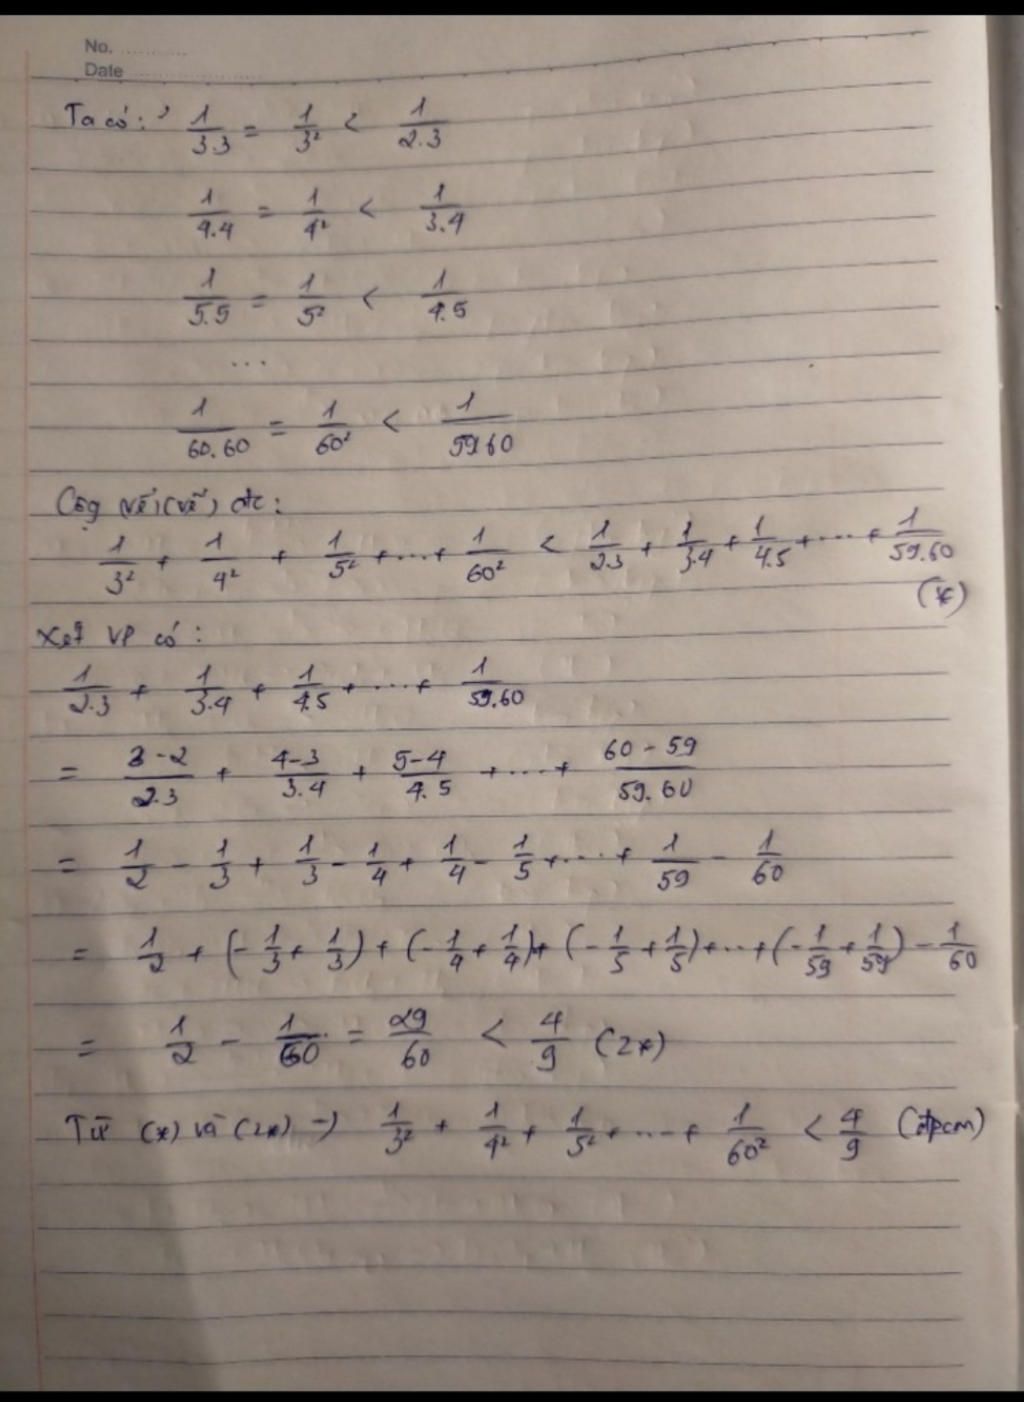 No. ............
Date ......................
Ta có: 1/3.3 = 1/3² < 1/2.3
1/4.4 = 1/4² < 1/3.4
1/5.5 = 1/5² < 1/4.5
...
1/60.60 = 1/60² < 1/59.60
Cộg vế (vế) đc:
1/3² + 1/4² + 1/5² + ... + 1/60² < 1/2.3 + 1/3.4 + 1/4.5 + ... + 1/59.60
(*)
Xét VP có:
1/2.3 + 1/3.4 + 1/4.5 + ... + 1/59.60
= 3-2/2.3 + 4-3/3.4 + 5-4/4.5 + ... + 60-59/59.60
= 1/2 - 1/3 + 1/3 - 1/4 + 1/4 - 1/5 + ... + 1/59 - 1/60
= 1/2 + (-1/3 + 1/3) + (-1/4 + 1/4) + (-1/5 + 1/5) + ... + (-1/59 + 1/59) - 1/60
= 1/2 - 1/60 = 29/60 < 4/9 (2*)
Từ (*) và (2*) → 1/3² + 1/4² + 1/5² + ... + 1/60² < 4/9 (đpcm)